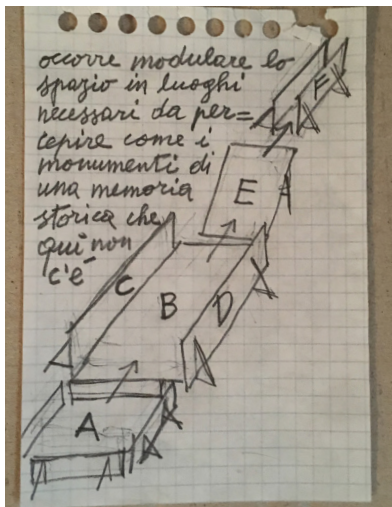 occorre modulare lo
spazio in luoghi
necessari da per=
cepire come i
monumenti di
una memoria
storica che
qui non
c'è
F
E
C
B
D
A